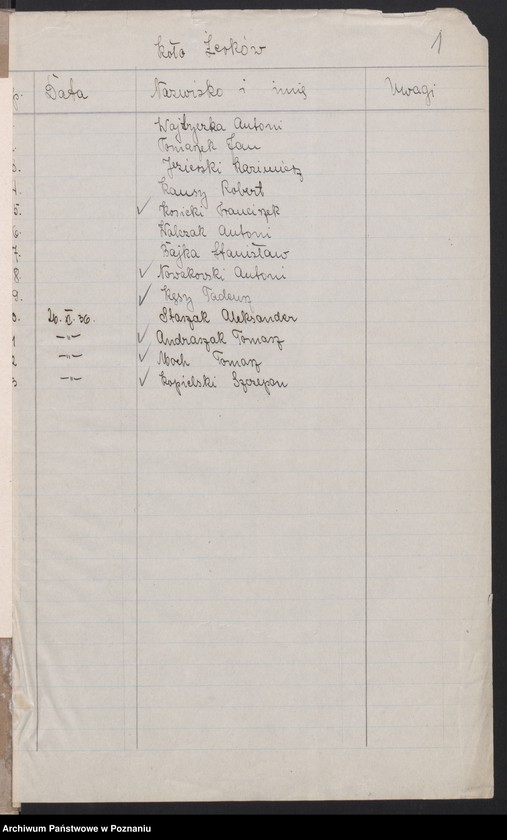 Koło Żerków
1
p. Data Nazwisko i imię Uwagi
Wojtyczka Antoni
Tomaszek Jan
3. Jezierski Kazimierz
4. Kausz Robert
5. ✓ Kosicki Franciszek
6. Walczak Antoni
7. Bajka Stanisław
8. ✓ Nowakowski Antoni
9. ✓ Kęsy Tadeusz
0. 26. II. 36. Staszak Aleksander
1 —"— ✓ Andraszak Tomasz
2 —"— ✓ Moch Tomasz
3 —"— ✓ Kopielski Szczepan
Archiwum Państwowe w Poznaniu